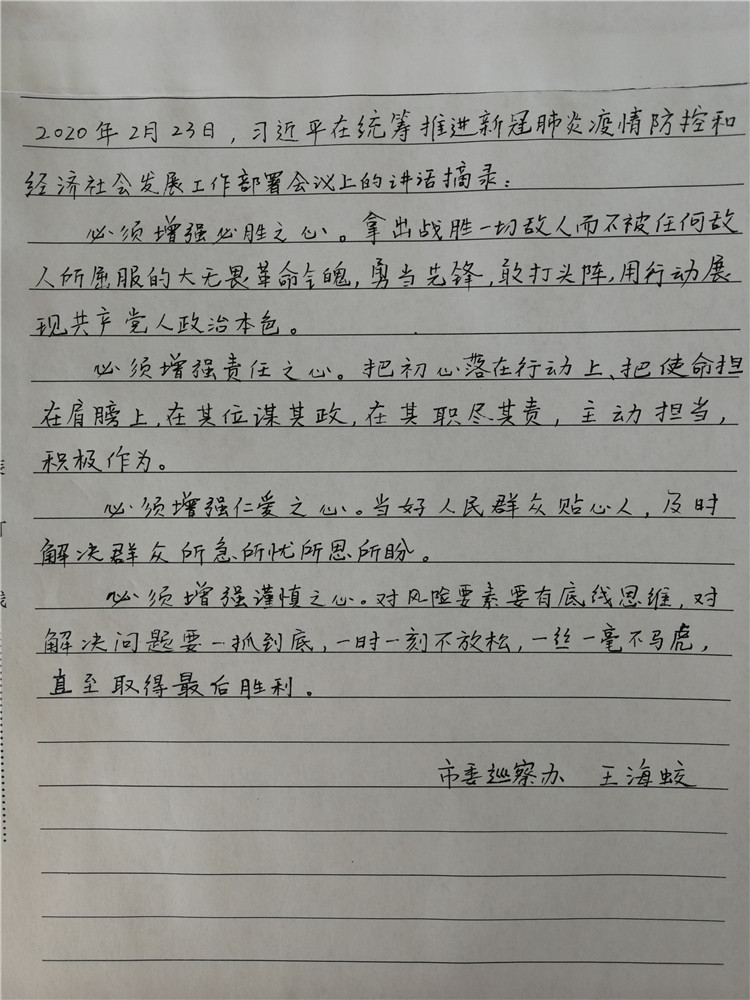 2020年2月23日，习近平在统筹推进新冠肺炎疫情防控和
经济社会发展工作部署会议上的讲话摘录：
必须增强必胜之心。拿出战胜一切敌人而不被任何敌
人所屈服的大无畏革命气魄，勇当先锋，敢打头阵，用行动展
现共产党人政治本色。
必须增强责任之心。把初心落在行动上、把使命担
在肩膀上，在其位谋其政，在其职尽其责，主动担当，
积极作为。
必须增强仁爱之心。当好人民群众贴心人，及时
解决群众所急所忧所思所盼。
必须增强谨慎之心。对风险要素要有底线思维，对
解决问题要一抓到底，一时一刻不放松，一丝一毫不马虎，
直至取得最后胜利。
市委巡察办 王海蛟
订